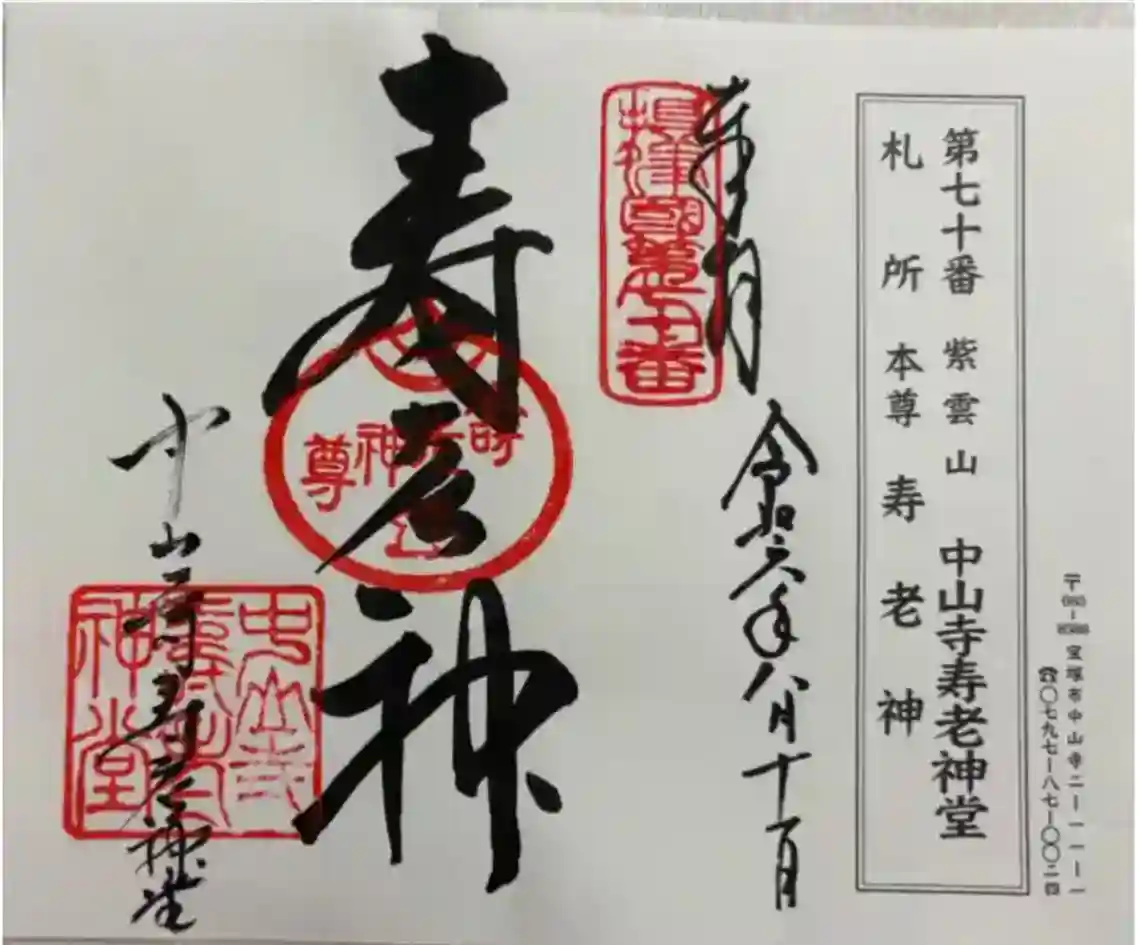 〒665-8588 宝塚市中山寺二ー一一ー一
☎〇七九七ー八七ー〇〇二四
第七十番 紫雲山 中山寺寿老神堂
札所本尊寿老神
奉拝
令和六年八月十一日
摂津國第七十番
寿老神
神
尊
中山寺寿老神堂
中山寺
壽老
神堂